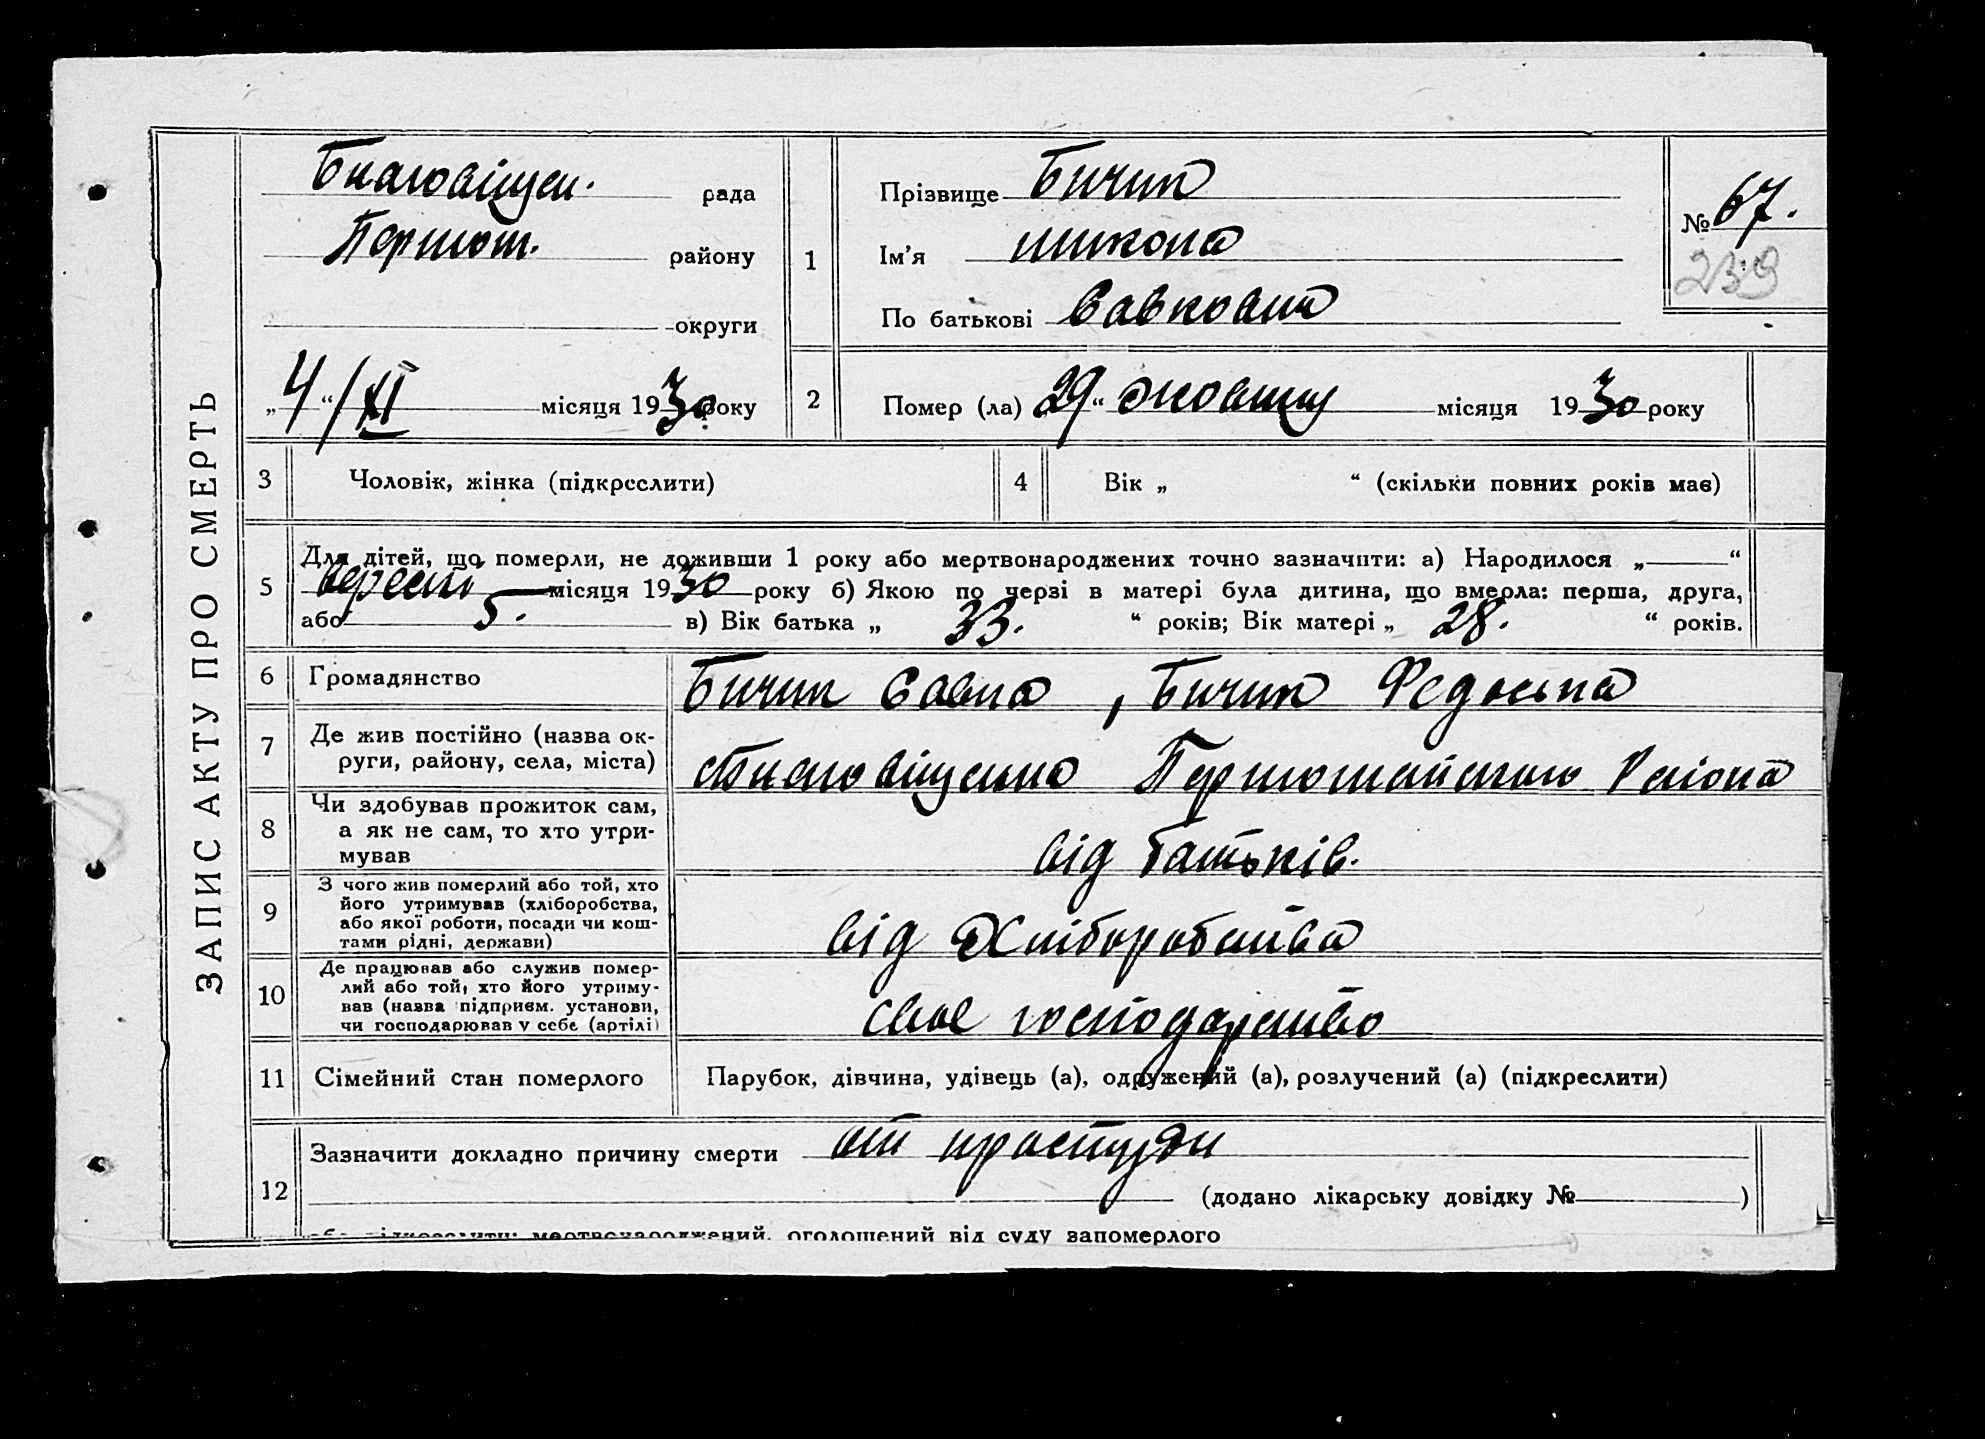 ЗАПИС АКТУ ПРО СМЕРТЬ
Благовіщен. рада
Першот. району
округи
„4“/XI місяця 1930 року
1
Прізвище Бичик
Ім'я
По батькові Савковна
№ 67.
239
2
Помер (ла) 29 “ жовтня місяця 1930 року
3 Чоловік, жінка (підкреслити)
4 Вік „ “ (скільки повних років має)
5 Для дітей, що померли, не доживши 1 року або мертвонароджених точно зазначити: а) Народилося „ “
місяця 1930 року б) Якою по черзі в матері була дитина, що вмерла: перша, друга,
або 5. в) Вік батька „ 33. “ років; Вік матері „ 28. “ років.
6 Громадянство
Бичик Савка, Бичик Федоська
7 Де жив постійно (назва ок-
руги, району, села, міста)
Першотравневого Района
8 Чи здобував прожиток сам,
а як не сам, то хто утри-
мував
від батьків.
9 З чого жив померлий або той, хто
його утримував (хліборобства,
або якої роботи, посади чи кош-
тами рідні, держави)
від Хліборобства
10 Де працював або служив помер-
лий або той, хто його утриму-
вав (назва підприєм. установи,
чи господарював у себе (артілі)
своє господарство
11 Сімейний стан померлого
Парубок, дівчина, удівець (а), одружений (а), розлучений (а) (підкреслити)
12 Зазначити докладно причину смерти от простуди
(додано лікарську довідку № )
або підкреслити: мертвонароджений, оголошений від суду запомерлого